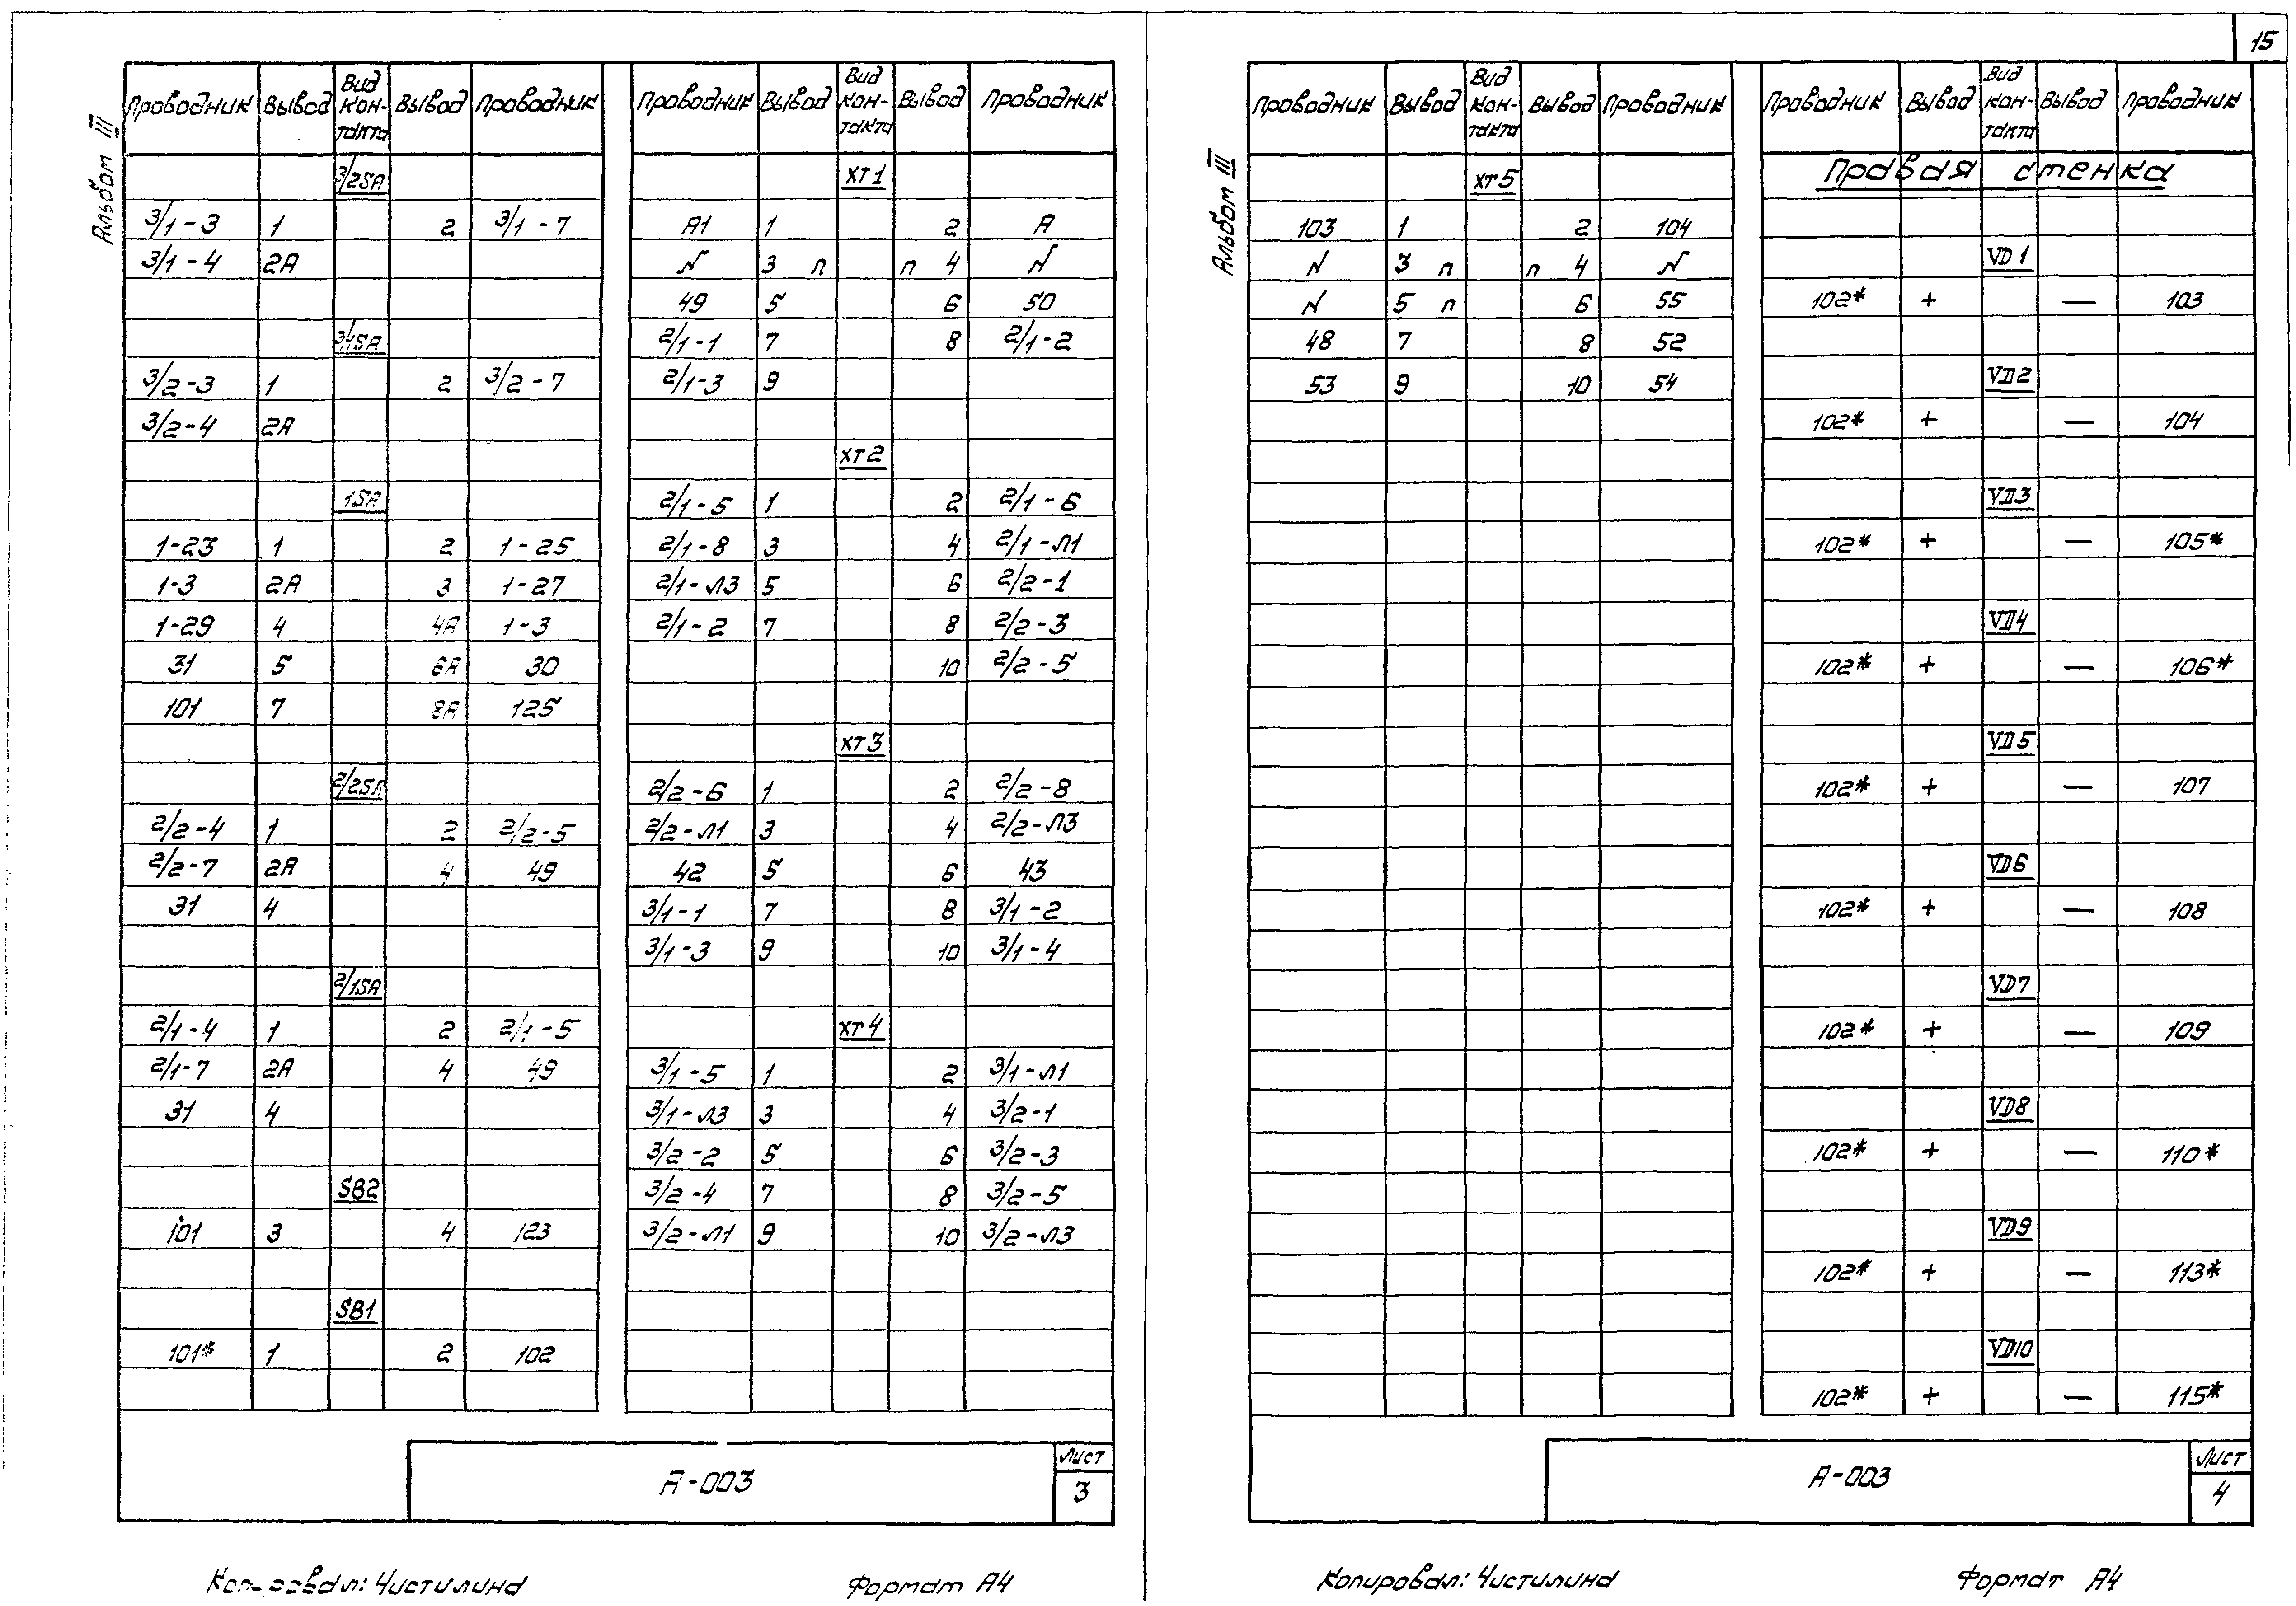 15
Альбом III
Проводник Вывод Вид кон-такта Вывод Проводник
3/2SA
3/1-3 1 2 3/1-7
3/1-4 2А
3/1SA
3/2-3 1 2 3/2-7
3/2-4 2А
1SA
1-23 1 2 1-25
1-3 2А 3 1-27
1-29 4 4А 1-3
31 5 6А 30
101 7 8А 125
2/2SA
2/2-4 1 2 2/2-5
2/2-7 2А 4 49
31 4
2/1SA
2/1-4 1 2 2/1-5
2/1-7 2А 4 49
31 4
SB2
101 3 4 123
SB1
101* 1 2 102
Проводник Вывод Вид кон-такта Вывод Проводник
XT1
А1 1 2 А
N 3 п п 4 N
49 5 6 50
2/1-1 7 8 2/1-2
2/1-3 9
XT2
2/1-5 1 2 2/1-6
2/1-8 3 4 2/1-Л1
2/1-Л3 5 6 2/2-1
2/1-2 7 8 2/2-3
10 2/2-5
XT3
2/2-6 1 2 2/2-8
2/2-Л1 3 4 2/2-Л3
42 5 6 43
3/1-1 7 8 3/1-2
3/1-3 9 10 3/1-4
XT4
3/1-5 1 2 3/1-Л1
3/1-Л3 3 4 3/2-1
3/2-2 5 6 3/2-3
3/2-4 7 8 3/2-5
3/2-Л1 9 10 3/2-Л3
А-003
Лист
3
Копировал: Чистилина Формат А4
Альбом III
Проводник Вывод Вид кон-такта Вывод Проводник
XT5
103 1 2 104
N 3 п п 4 N
N 5 п 6 55
48 7 8 52
53 9 10 54
Проводник Вывод Вид кон-такта Вывод Проводник
Правая стенка
VD1
102* + — 103
VD2
102* + — 104
VD3
102* + — 105*
VD4
102* + — 106*
VD5
102* + — 107
VD6
102* + — 108
VD7
102* + — 109
VD8
102* + — 110*
VD9
102* + — 113*
VD10
102* + — 115*
А-003
Лист
4
Копировал: Чистилина Формат А4